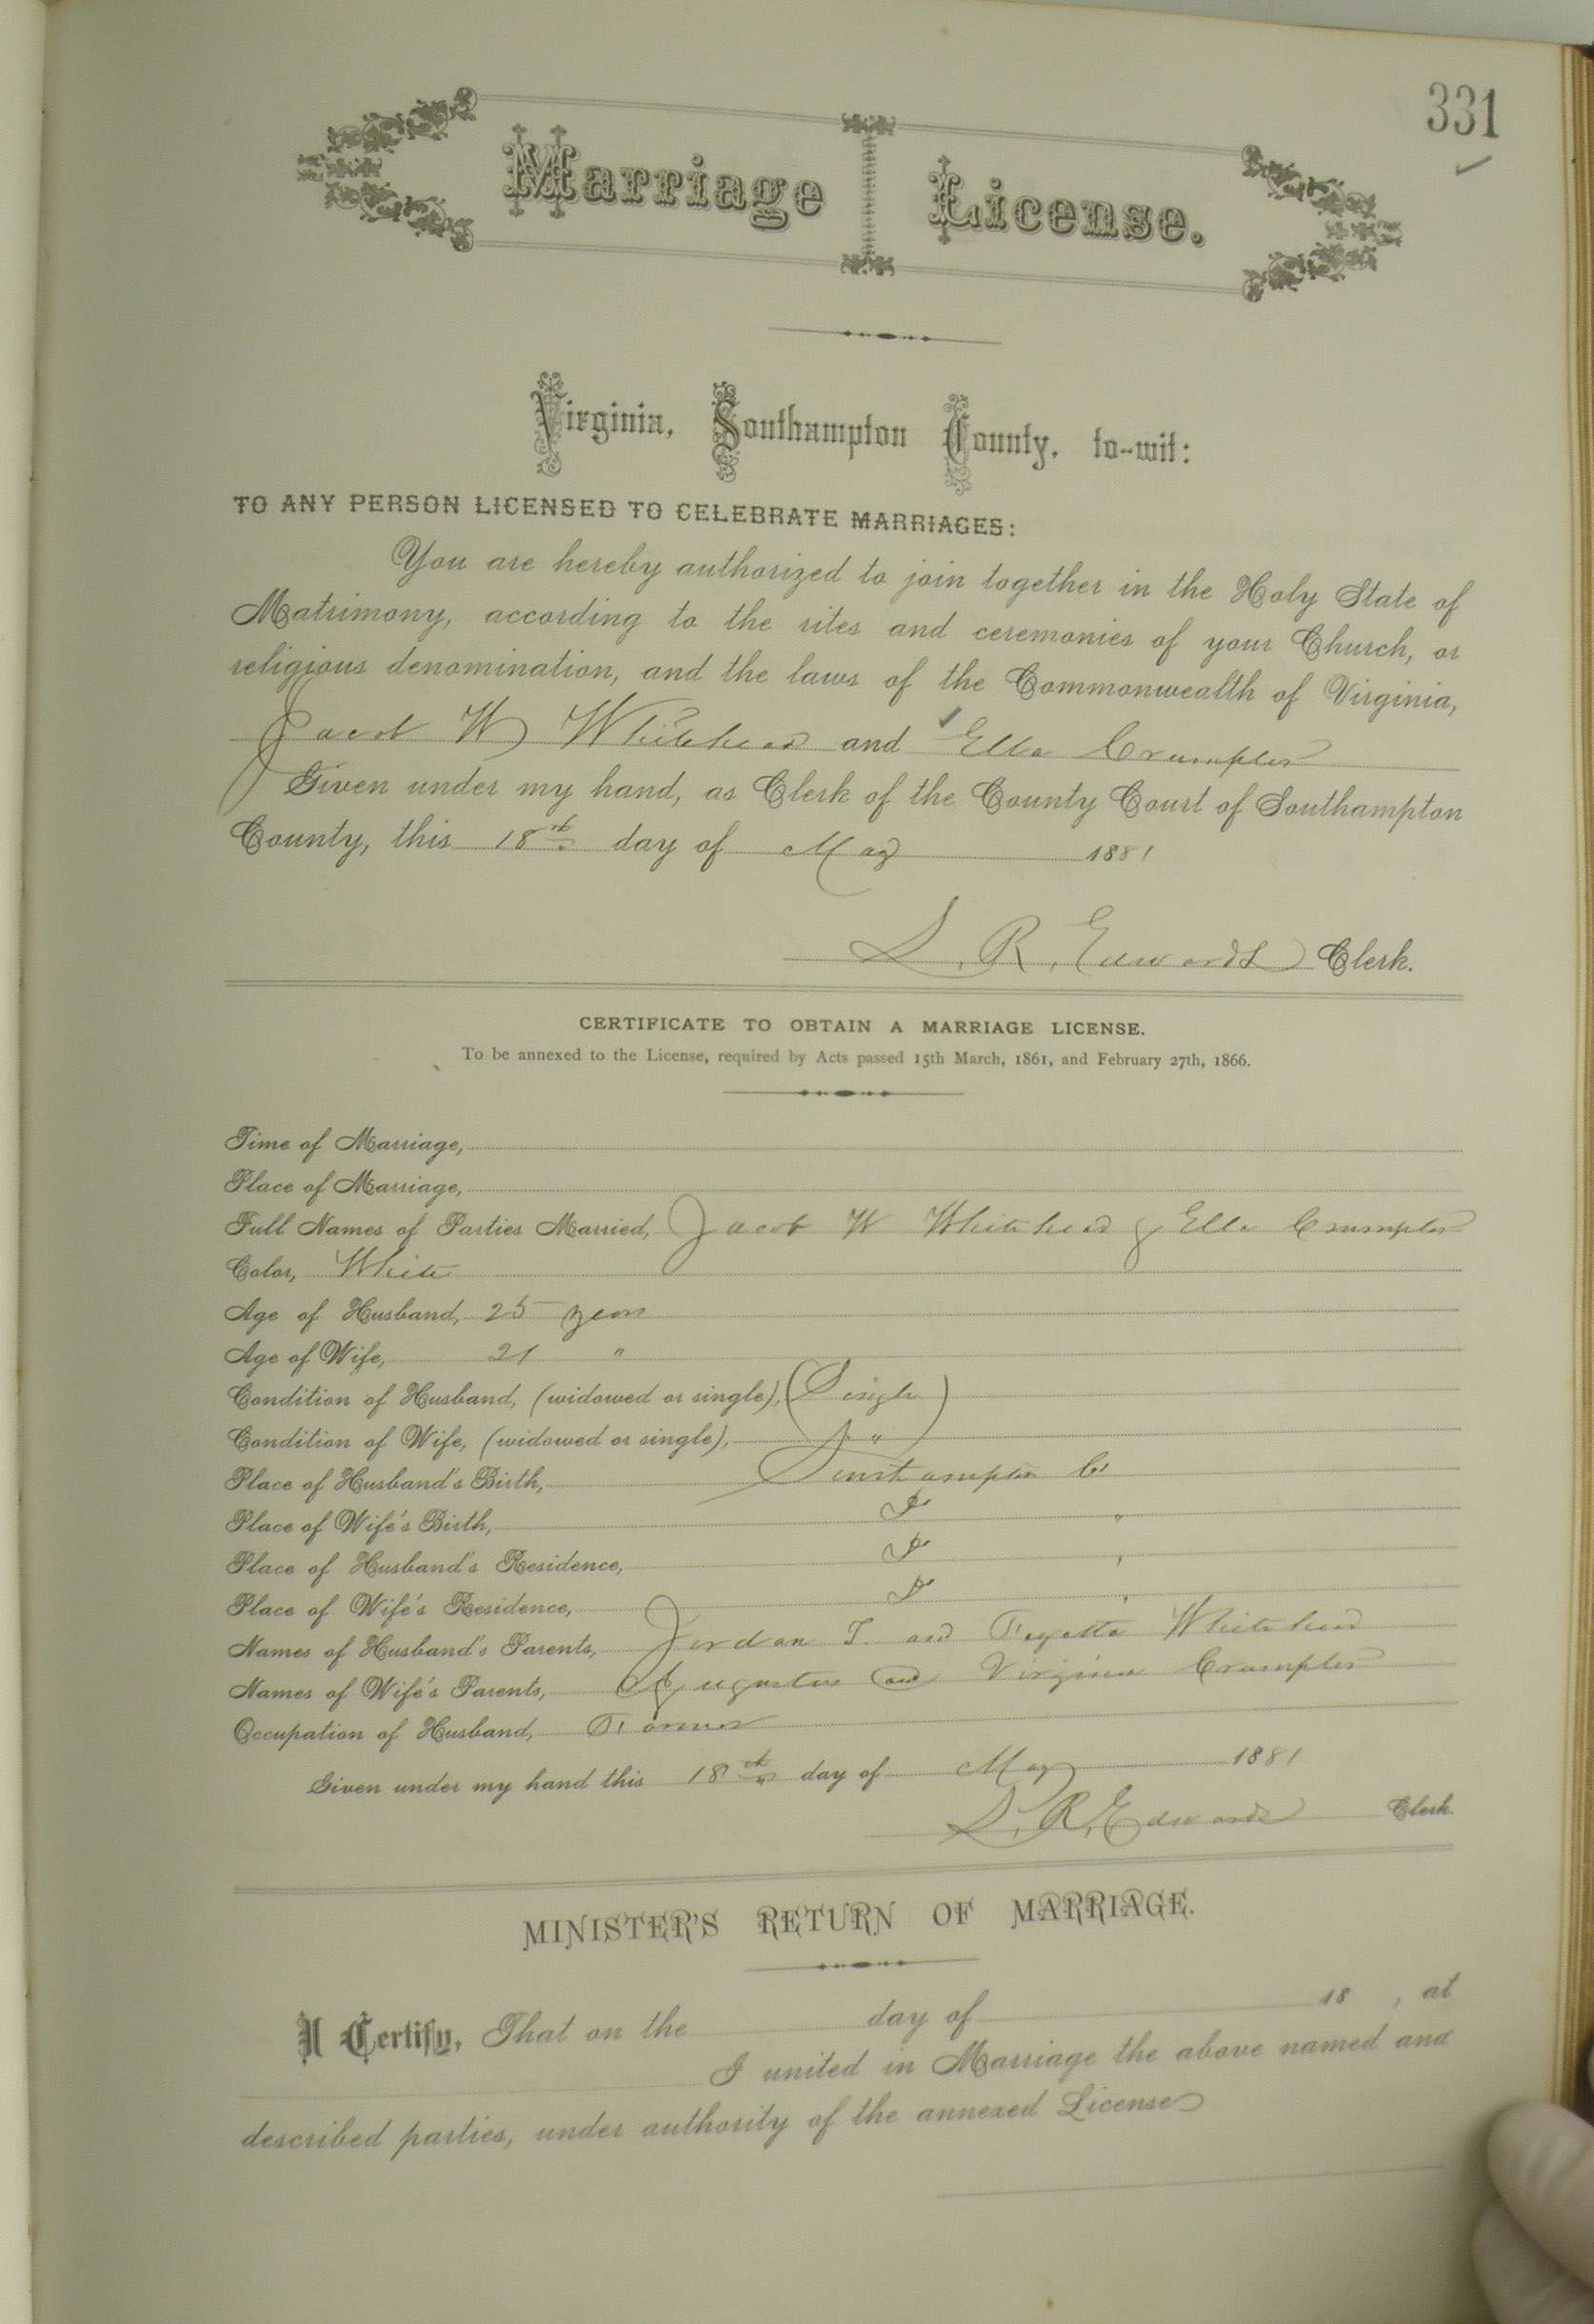 331
Marriage License.
Virginia, Southampton County, to-wit:
TO ANY PERSON LICENSED TO CELEBRATE MARRIAGES:
You are hereby authorized to join together in the Holy State of
Matrimony, according to the rites and ceremonies of your Church, or
religious denomination, and the laws of the Commonwealth of Virginia,
Jacob W Whitehead and Ella Crumpler
Given under my hand, as Clerk of the County Court of Southampton
County, this 18th day of May 1881
L. R. Edwards Clerk.
CERTIFICATE TO OBTAIN A MARRIAGE LICENSE.
To be annexed to the License, required by Acts passed 15th March, 1861, and February 27th, 1866.
Time of Marriage,
Place of Marriage,
Full Names of Parties Married, Jacob W Whitehead & Ella Crumpler
Color, White
Age of Husband, 25 years
Age of Wife, 21 "
Condition of Husband, (widowed or single), (Single)
Condition of Wife, (widowed or single), "
Place of Husband's Birth, Southampton Co
Place of Wife's Birth, Do "
Place of Husband's Residence, Do "
Place of Wife's Residence, Do "
Names of Husband's Parents, Jordan T. and Whitehead
Names of Wife's Parents, Augustus and Virginia Crumpler
Occupation of Husband, Farmer
Given under my hand this 18th day of May 1881
L. R. Edwards Clerk.
MINISTER'S RETURN OF MARRIAGE.
I Certify, That on the day of 18 , at
I united in Marriage the above named and
described parties, under authority of the annexed License